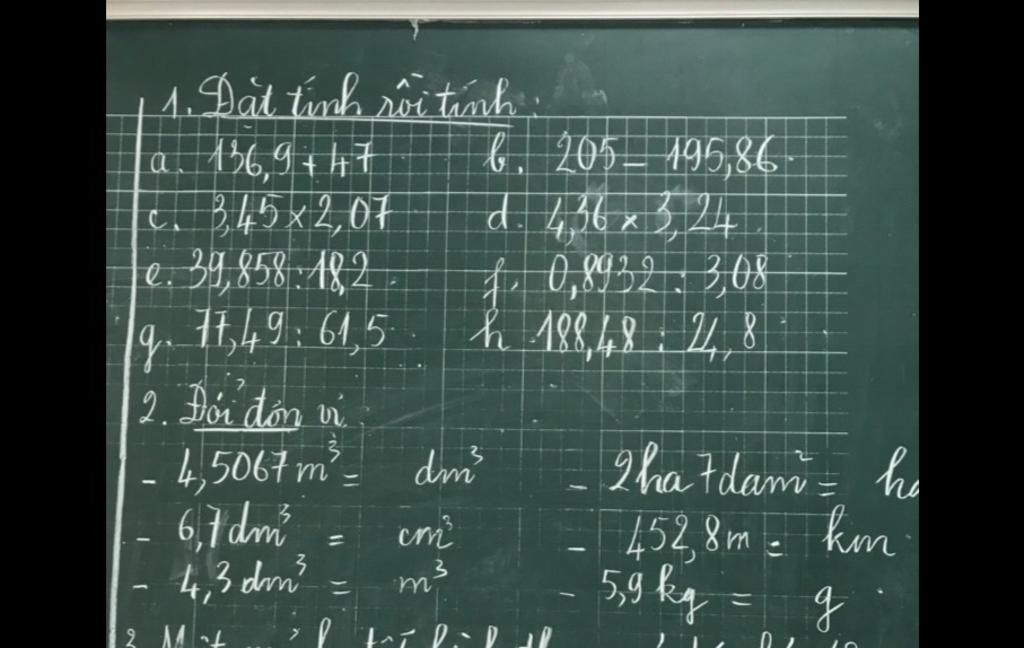 1. Đặt tính rồi tính:
a. 136,9 + 47 b. 205 - 195,86
c. 3,45 x 2,07 d. 4,36 x 3,24
e. 39,858 : 18,2 f. 0,8932 : 3,08
g. 77,49 : 61,5 h 188,48 : 24,8
2. Đổi đơn vị
- 4,5067 m³ = dm³ - 2ha 7dam² = ha
- 6,7 dm³ = cm³ - 452,8m = km
- 4,3 dm³ = m³ - 5,9 kg = g
3. Một